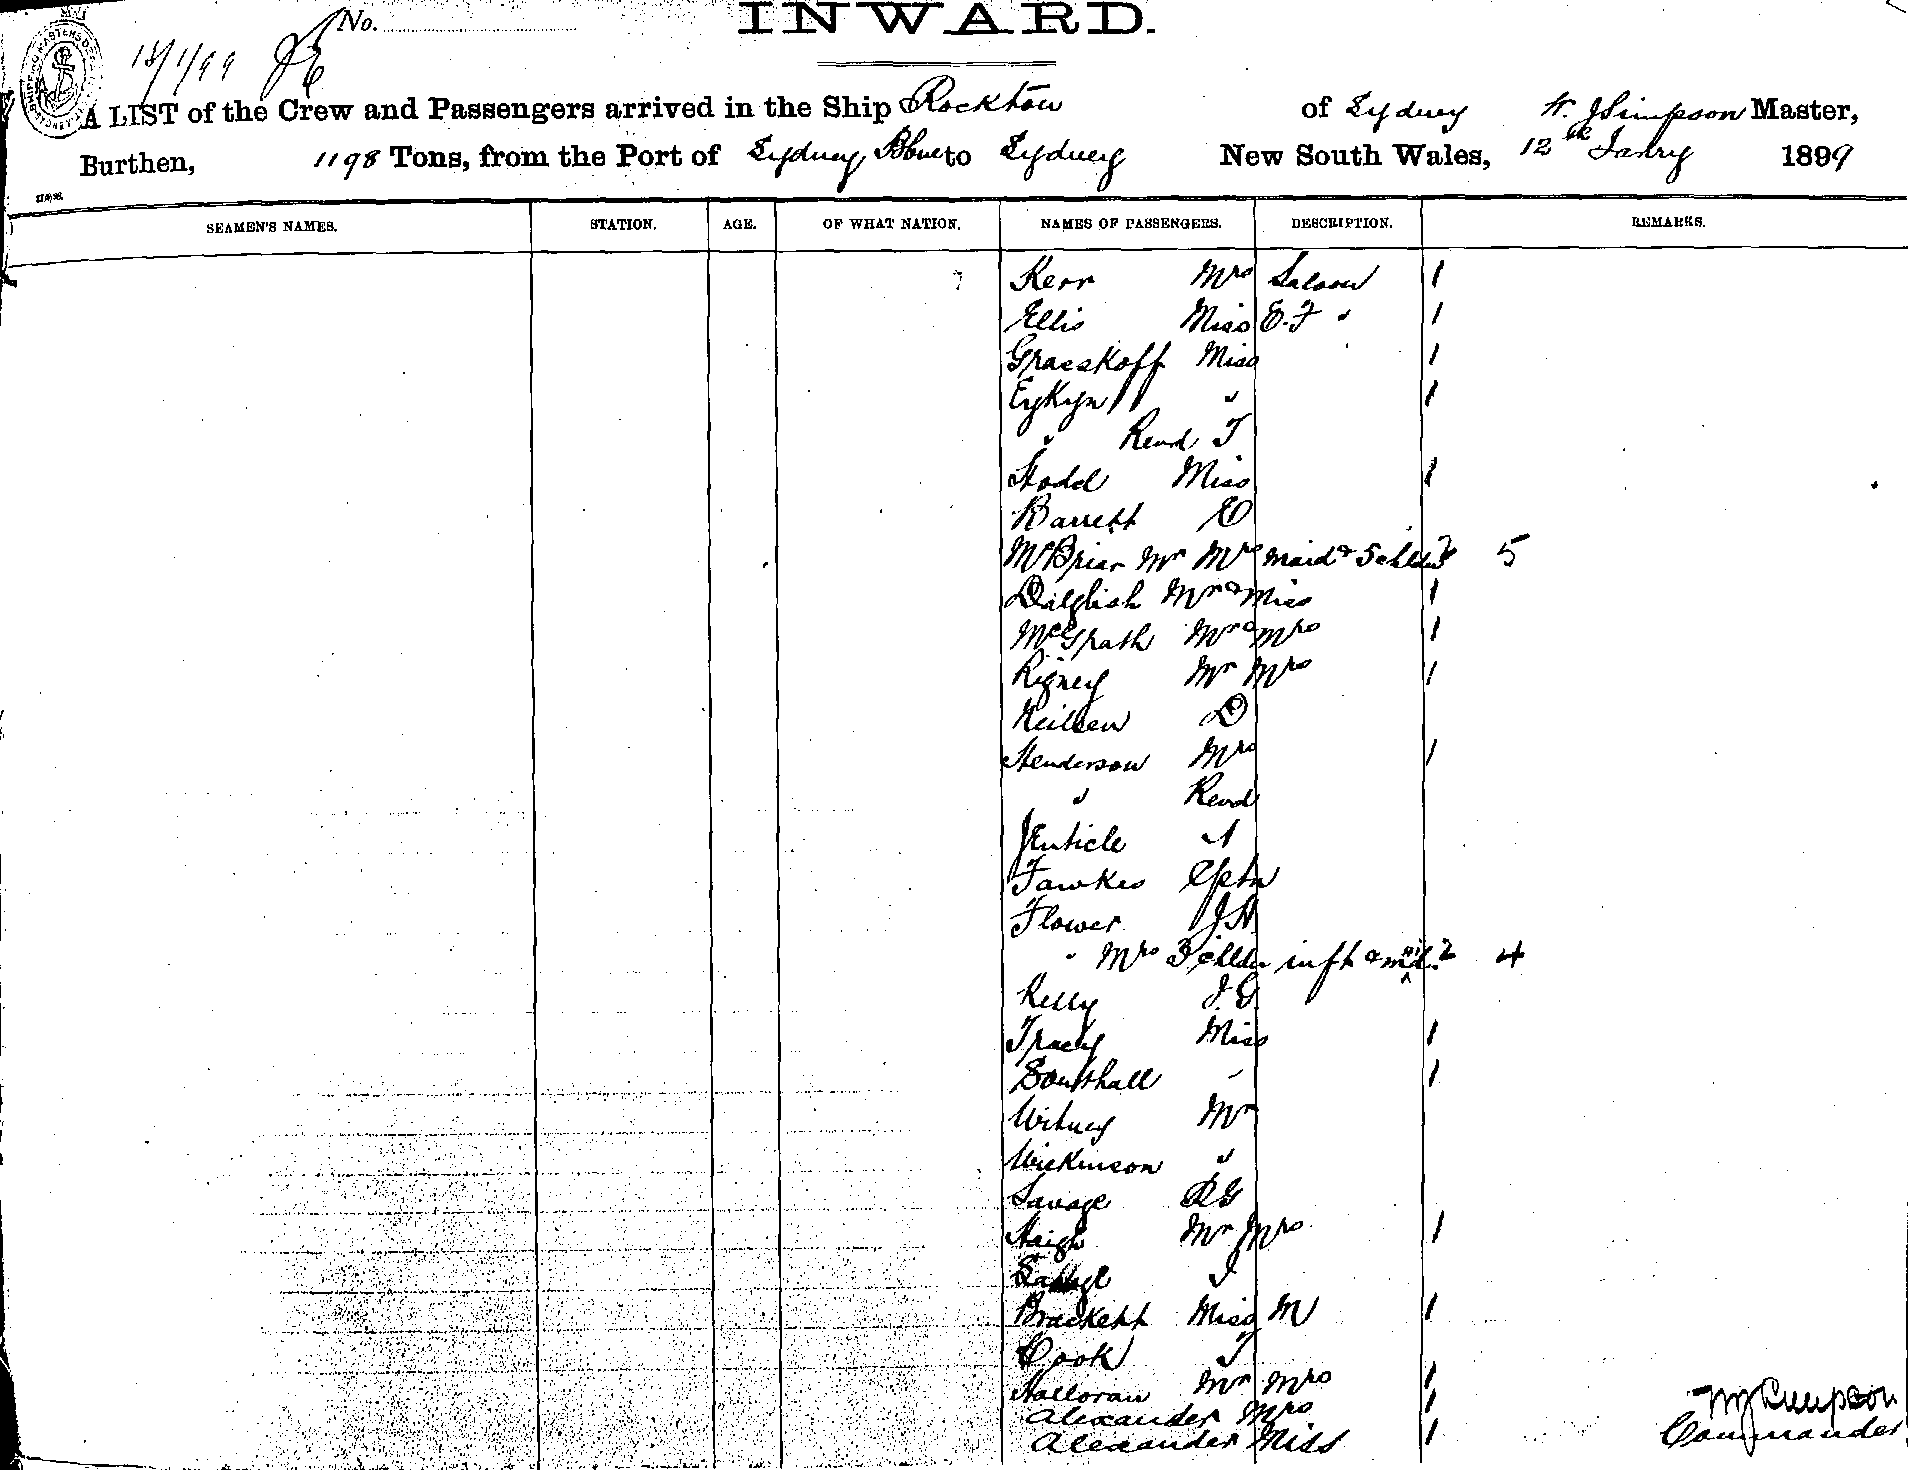 No.
INWARD.
13/1/99
A LIST of the Crew and Passengers arrived in the Ship Rockton of Sydney W. J Simpson Master,
Burthen, 1198 Tons, from the Port of Sydney, Bbne to Sydney New South Wales, 12th Janry 1899
SEAMEN'S NAMES. STATION. AGE. OF WHAT NATION. NAMES OF PASSENGERS. DESCRIPTION. REMARKS.
Kerr Mrs Saloon 1
Ellis Miss E. F " 1
Graeskoff Miss 1
Eykyn " 1
" Revd T
Stodd Miss 1
Barrett E
McBriar Mr Mrs maid & 5 chldn 2 5
Dalglish Mr & Miss 1
McGrath Mr & Mrs 1
Rigney Mr Mrs 1
Neilsen D
Henderson Mrs 1
" Revd
Jenticle A
Fawkes Cptn
Flower J H
" Mrs 3 chldn inft & maid 2 4
Kelly J. G
Tracey Miss 1
Southall " 1
Witney Mr
Wickinson "
Savage R G
Haigh Mr Mrs 1
J
Brackett Miss M 1
Cook T
Halloran Mr Mrs 1
Alexander Mrs 1
Alexander Miss 1
W J Simpson
Commander